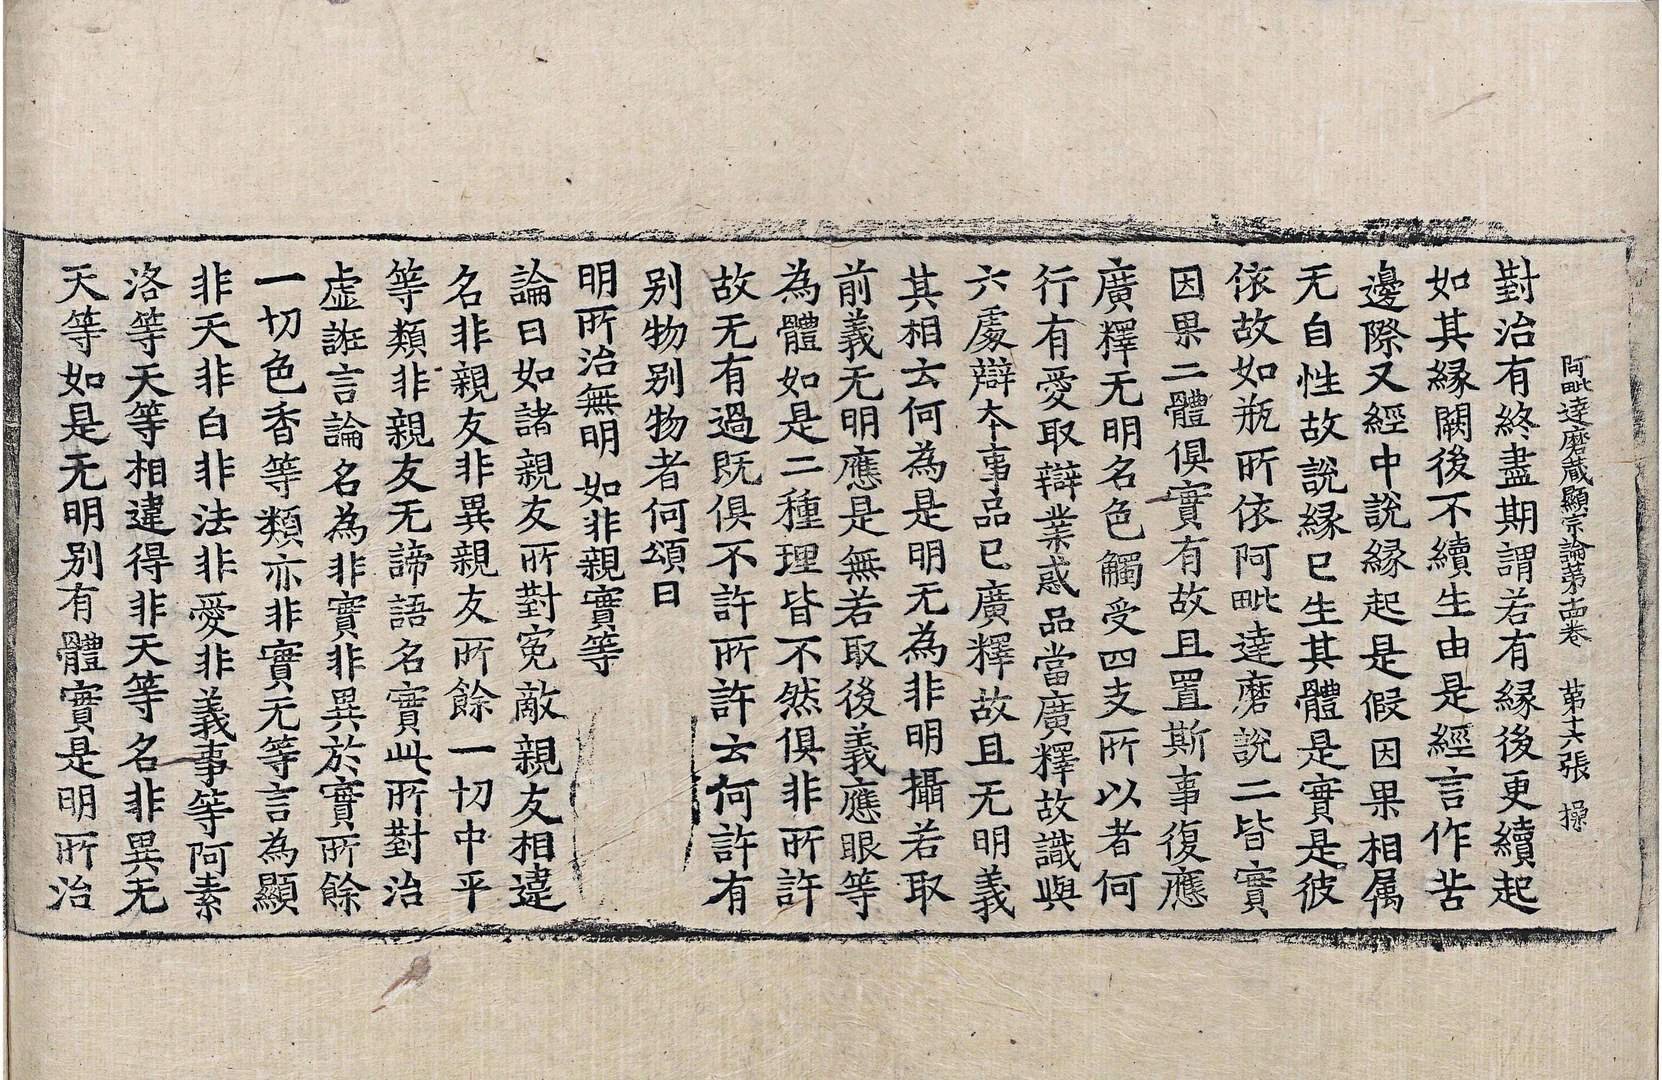 阿毗達磨藏顯宗論第十四卷　第十六張　操
對治有終盡期謂若有緣後更續起
如其緣闕後不續生由是經言作苦
邊際又經中說緣起是假因果相属
无自性故說緣已生其體是實是彼
依故如瓶所依阿毗達磨說二皆實
因果二體俱實有故且置斯事復應
廣釋无明名色觸受四支所以者何
行有愛取辯業惑品當廣釋故識與
六處辯本事品已廣釋故且无明義
其相云何為是明无為非明攝若取
前義无明應是無若取後義應眼等
為體如是二種理皆不然俱非所許
故无有過既俱不許所許云何許有
别物别物者何頌曰
明所治無明　如非親實等
論曰如諸親友所對寃敵親友相違
名非親友非異親友所餘一切中平
等類非親友无諦語名實此所對治
虛誑言論名為非實非異於實所餘
一切色香等類亦非實无等言為顯
非天非白非法非愛非義事等阿素
洛等天等相違得非天等名非異无
天等如是无明别有體實是明所治